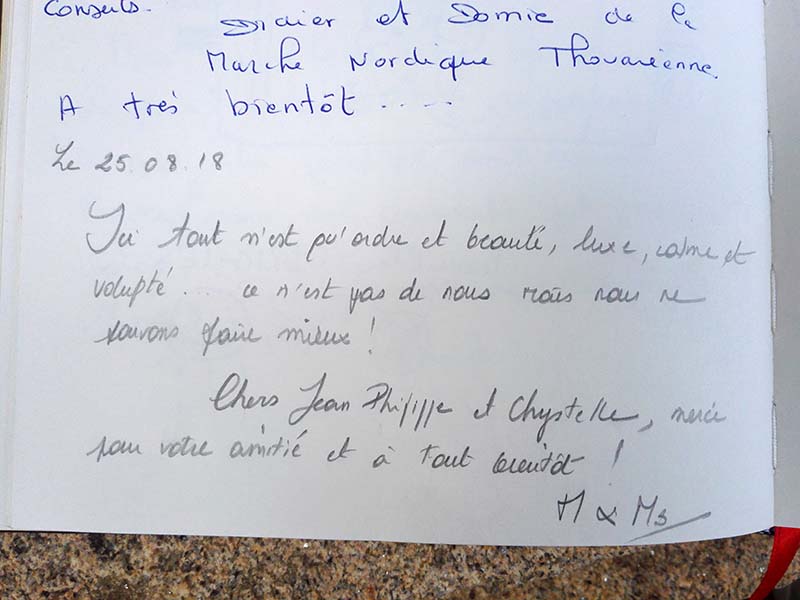 Conseils.
Didier et Domie de la
Marche Nordique Thouaréenne.
A très bientôt .....
Le 25.08.18
Ici tout n'est qu'ordre et beauté, luxe, calme et
volupté.... ce n'est pas de nous mais nous ne
savons faire mieux !
Chers Jean Philippe et Chrystelle, merci
pour votre amitié et à tout bientôt !
M & Ms